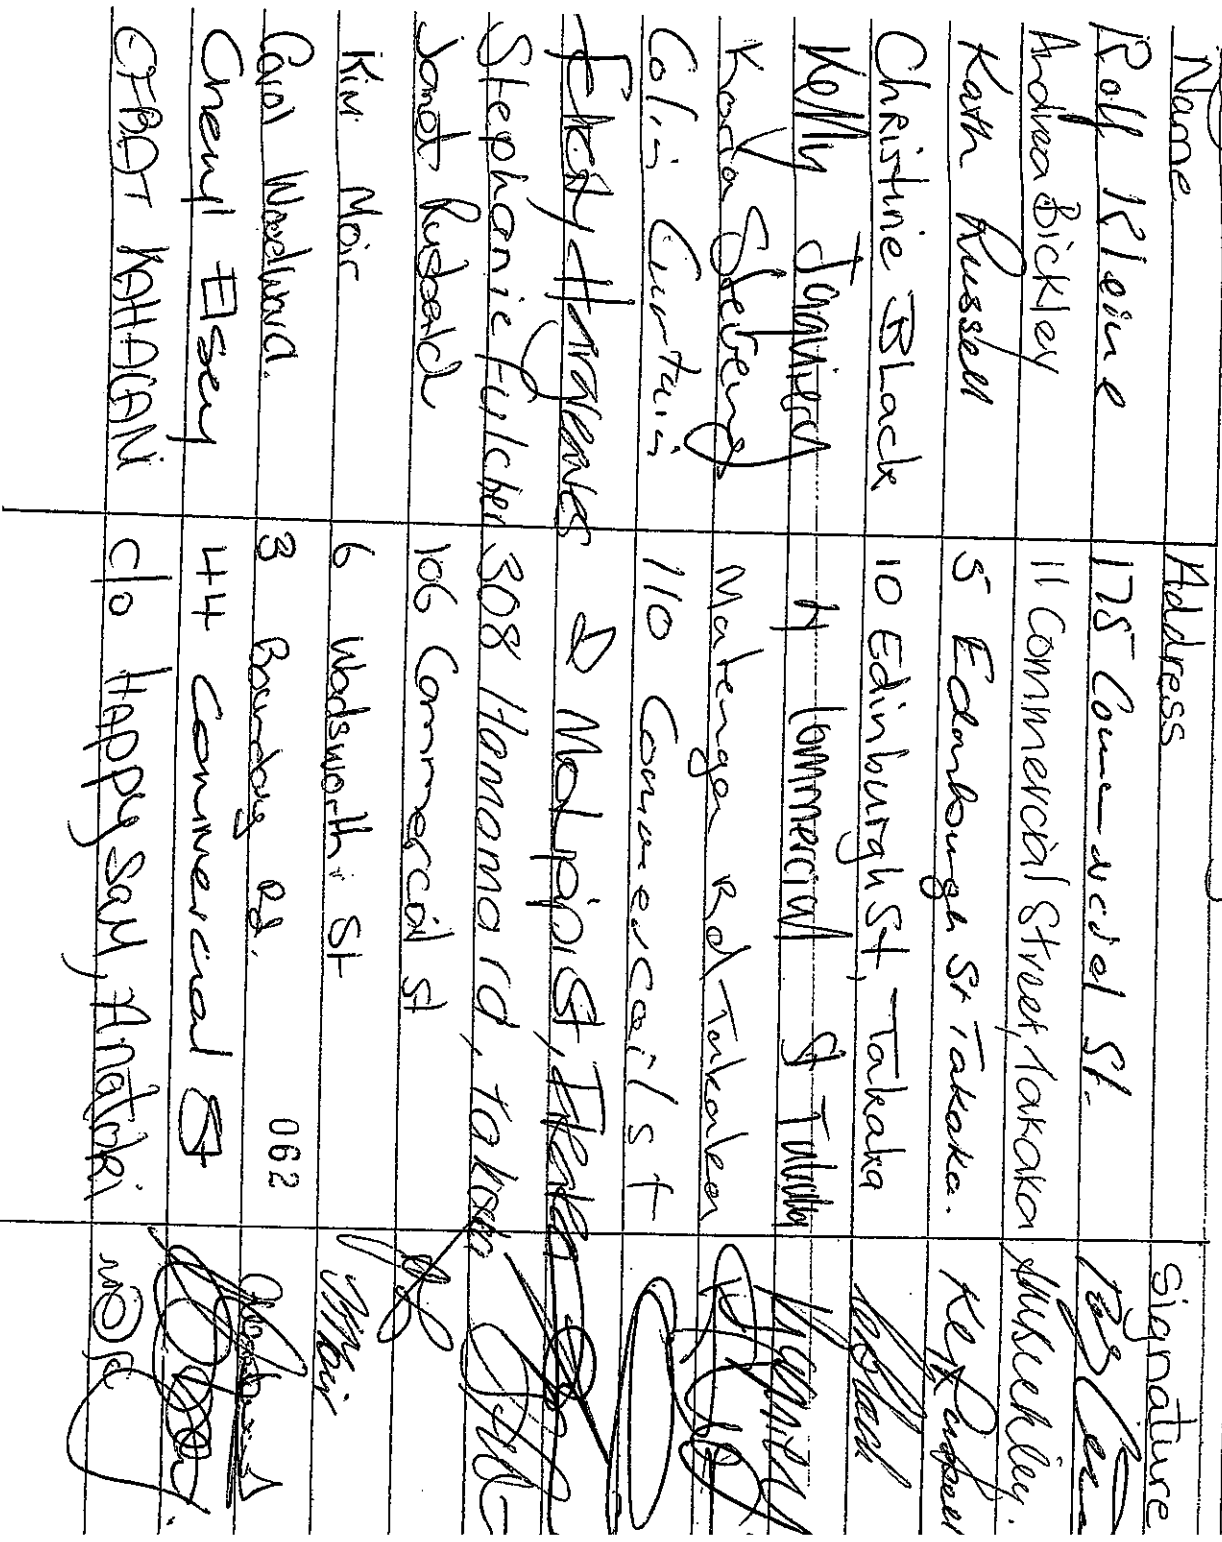 Name Address Signature
Rolf Kleine 175 Commercial St.
Andrea Bickley 11 Commercial Street, Takaka
Kath Russell 5 Edinburgh St Takaka. Russell
Christine Black 10 Edinburgh St, Takaka
Kelly Commercial St
Stevens Matenga Rd Takaka
Colin 110 Commercail st
Hargreaves 2 Motupipi St, Takaka
Stephanie Fulcher 308 Hamama rd, Takaka
Janet 106 Commercail St
Kim Moir 6 Wadsworth St
Carol Woodward. 3 Boundary Rd.
062
Cheryl Elsey 44 Commercial St
KAHALANI c/o Happy Sam, Anatoki